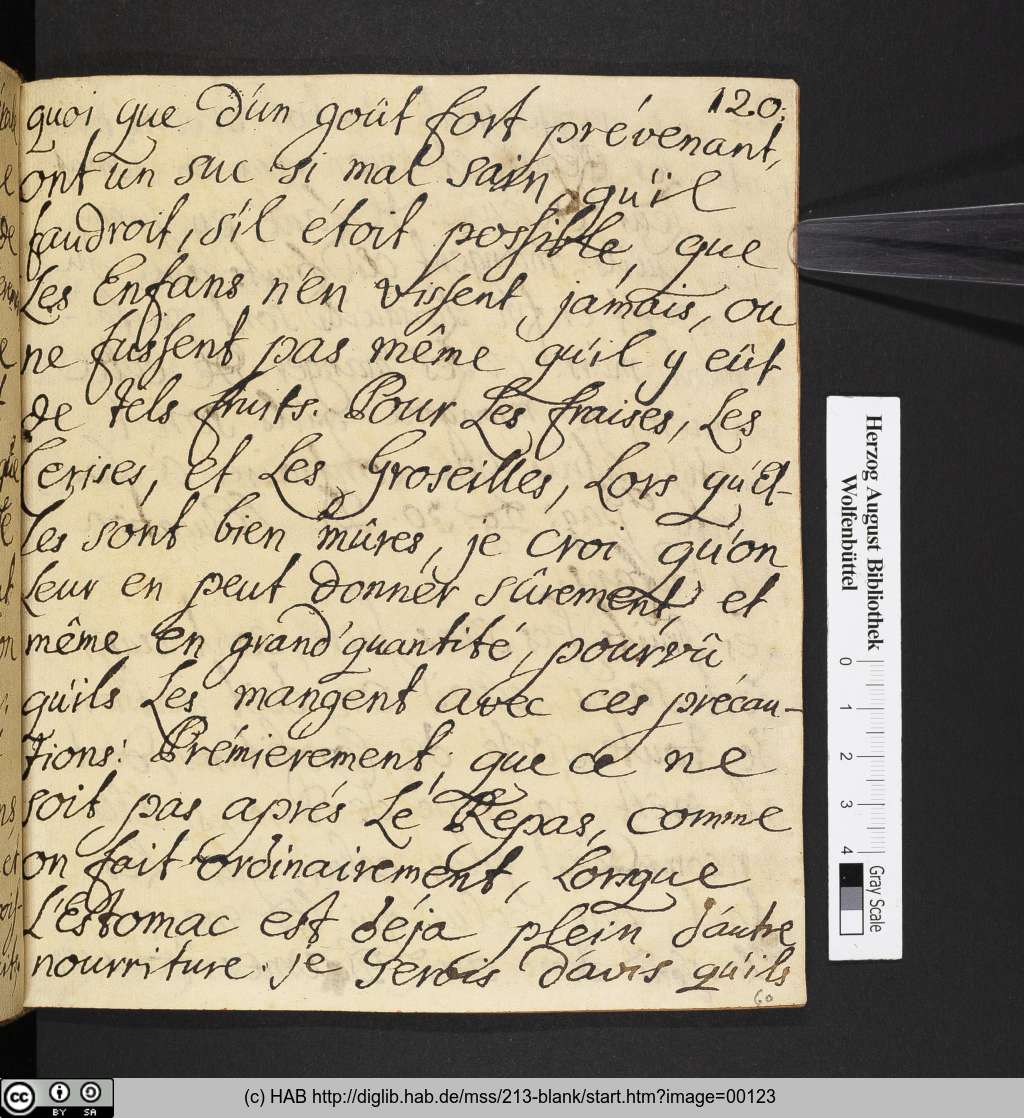 120.
quoi que d'un goût fort prévenant,
ont un suc si mal sain, qu'il
faudroit, s'il étoit possible, que
Les Enfans n'en vissent jamais, ou
ne fussent pas même qu'il y eût
de tels fruits. Pour Les fraises, Les
Cerises, et Les Groseilles, Lors qu'el-
les sont bien mûres, je croi qu'on
Leur en peut donner sûrement, et
même en grand' quantité, pourvû
qu'ils Les mangent avec ces précau-
tions: Prémierement, que ce ne
soit pas aprés Le Repas, comme
on fait ordinairement, Lorsque
L'Estomac est déja plein d'autre
nourriture. je serois d'avis qu'ils
60
Herzog August Bibliothek
Wolfenbüttel
0 1 2 3 4
Gray Scale
cc BY SA
(c) HAB http://diglib.hab.de/mss/213-blank/start.htm?image=00123